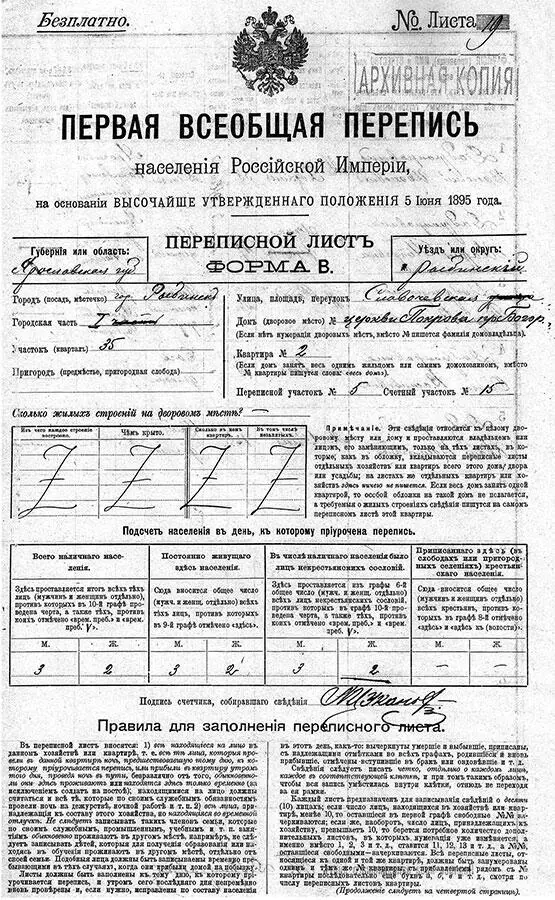 Безплатно.
№ Листа 19
АРХИВНАЯ КОПИЯ
ПЕРВАЯ ВСЕОБЩАЯ ПЕРЕПИСЬ
населенія Россійской Имперіи,
на основаніи ВЫСОЧАЙШЕ УТВЕРЖДЕННАГО ПОЛОЖЕНІЯ 5 Іюня 1895 года.
Губернія или область:
Ярославская губ
ПЕРЕПИСНОЙ ЛИСТЪ
ФОРМА В.
Уѣздъ или округъ:
Рыбинскій
Городъ (посадъ, мѣстечко) гор. Рыбинскъ
Городская часть I
Участокъ (кварталъ) 35
Пригородъ (предмѣстье, пригородная слобода)
Улица, площадь, переулокъ
Домъ (дворовое мѣсто) № церкви Покрова
(Если нѣтъ нумераціи дворовыхъ мѣстъ, вмѣсто № пишется фамилія домовладѣльца)
Квартира № 2
(Если домъ занятъ весь однимъ жильцомъ или самимъ домохозяиномъ, вмѣсто № квартиры пишутся слова: «весь домъ»)
Переписной участокъ № 5 Счетный участокъ № 15
Сколько жилыхъ строеній на дворовомъ мѣстѣ? —
Изъ чего каждое строеніе построено.
Чѣмъ крыто.
Сколько въ немъ квартиръ.
Въ томъ числѣ незанятыхъ.
Z Z Z Z
Примѣчаніе. Эти свѣдѣнія относятся къ цѣлому дво-
ровому мѣсту или дому и проставляются владѣльцемъ или
лицомъ, его заменяющимъ, только на тѣхъ листахъ, въ ко-
торые, какъ въ обложку, вкладываются переписные листы
отдѣльныхъ хозяйствъ или квартиръ всего этого дома/двора
или усадьбы; на листахъ же отдѣльныхъ квартиръ или хо-
зяйствъ здѣсь ничего не пишется. Если весь домъ занятъ одной
квартирой, то особой обложки на такой домъ не полагается,
а требуемыя о жилыхъ строеніяхъ свѣдѣнія пишутся на самомъ
переписномъ листѣ этой квартиры.
Подсчетъ населенія въ день, къ которому пріурочена перепись.
Всего наличнаго насе-
ленія.
Постоянно живущаго
здѣсь населенія.
Въ числѣ наличнаго населенія было
лицъ некрестьянскихъ сословій.
Приписаннаго здѣсь (въ
слободахъ или пригород-
ныхъ селеніяхъ) крестьян-
скаго населенія.
Здѣсь проставляется итогъ всѣхъ тѣхъ
лицъ (мужчинъ и женщинъ отдѣльно),
противъ которыхъ въ 10-й графѣ про-
ведена черта, а также тѣхъ, противъ
коихъ отмѣчено «врем. преб.» и «врем.
преб. V».
Сюда вносится общее число
(муж. и женщ. отдѣльно) всѣхъ
тѣхъ лицъ, противъ которыхъ
въ 9-й графѣ отмѣчено «здѣсь».
Здѣсь проставляется изъ графы 6-й
общее число (муж. и женщ. отдѣльно)
всѣхъ лицъ некрестьянскихъ сословій,
противъ которыхъ въ графѣ 10-й про-
ведена черта, а также тѣхъ, противъ
коихъ отмѣчено «врем. преб.» и «врем.
преб. V».
Сюда вносится общее число
(муж. и женщ. отдѣльно)
всѣхъ крестьянъ, противъ ко-
торыхъ въ графѣ 8-й отмѣчено
«здѣсь» и «здѣсь къ (волости)».
М. Ж. М. Ж. М. Ж. М. Ж.
3 2 3 2 3 2 — —
Подпись счетчика, собиравшаго свѣдѣнія
Правила для заполненія переписного листа.
Въ переписной листъ вносятся: 1) всѣ находящіеся на лицо въ
данномъ хозяйствѣ или квартирѣ, т. е. всѣ тѣ лица, которыя про-
вели въ данной квартирѣ ночь, предшествовавшую тому дню, къ ко-
торому пріурочивается перепись, или прибыли въ квартиру утромъ
того дня, проведя ночь въ пути, безразлично отъ того, обыкновен-
но они здѣсь проживаютъ или находятся здѣсь только временно (за
исключеніемъ солдатъ на постоѣ); находящимися на лицо должны
считаться и всѣ тѣ, которые по своимъ служебнымъ обязанностямъ
провели ночь на дежурствѣ, ночной работѣ и т. п. 2) всѣ лица, при-
надлежащія къ составу этого хозяйства, но находящіяся во временной
отлучкѣ. Не слѣдуетъ записывать такихъ членовъ семьи, которые
по своимъ служебнымъ, промышленнымъ, учебнымъ и т. п. заня-
тіямъ обыкновенно проживаютъ въ другомъ мѣстѣ, напримѣръ, не слѣ-
дуетъ записывать дѣтей, которыя для полученія образованія или на-
ходясь въ обученіи проживаютъ въ другомъ мѣстѣ, отдѣльно отъ
своей семьи. Подобныя лица должны быть записываемы временно пре-
бывающими въ тѣхъ случаяхъ, когда они прибыли домой на побывку.
Листы должны быть заполнены къ тому дню, къ которому прі-
урочивается перепись, и утромъ сего послѣдняго дня непремѣнно
вновь провѣрены и, если нужно, исправлены по составу населенія
въ этотъ день, какъ-то: вычеркнуты умершіе и выбывшіе, приписаны,
съ надлежащими отмѣтками во всѣхъ графахъ, родившіеся и вновь
прибывшіе, отмѣчены вступившіе въ бракъ или овдовѣвшіе и т. д.
Свѣдѣнія слѣдуетъ писать четко, отдѣльно о каждомъ лицѣ,
каждое въ соотвѣтствующей клѣткѣ, и при томъ такимъ образомъ,
чтобы вся запись умѣстилась внутри клѣтки, отнюдь не переходя
за ея рамки.
Каждый листъ предназначенъ для записыванія свѣдѣній о десяти
(10) лицахъ; если число лицъ, находящихся въ хозяйствѣ или квар-
тирѣ, менѣе 10, то остающіеся въ первой графѣ свободные №№ вы-
черкиваются; если же, наоборотъ, число лицъ, принадлежащихъ къ
хозяйству, превышаетъ 10, то берется потребное количество допол-
нительныхъ листовъ, въ которыхъ нумерація уже измѣняется, а
именно вмѣсто 1, 2, 3 и т. д., ставится 11, 12, 13 и т. д., а №№,
остающіеся свободными—вычеркиваются. Всѣ переписные листы, от-
носящіеся къ одной и той же квартирѣ, должны быть занумерованы
однимъ и тѣмъ же № квартиры, съ прибавленіемъ рядомъ съ №
квартиры послѣдовательно еще буквъ а, б, в и т. д., смотря по
числу переписныхъ листовъ квартиры.
(Продолженіе слѣдуетъ на четвертой страницѣ).